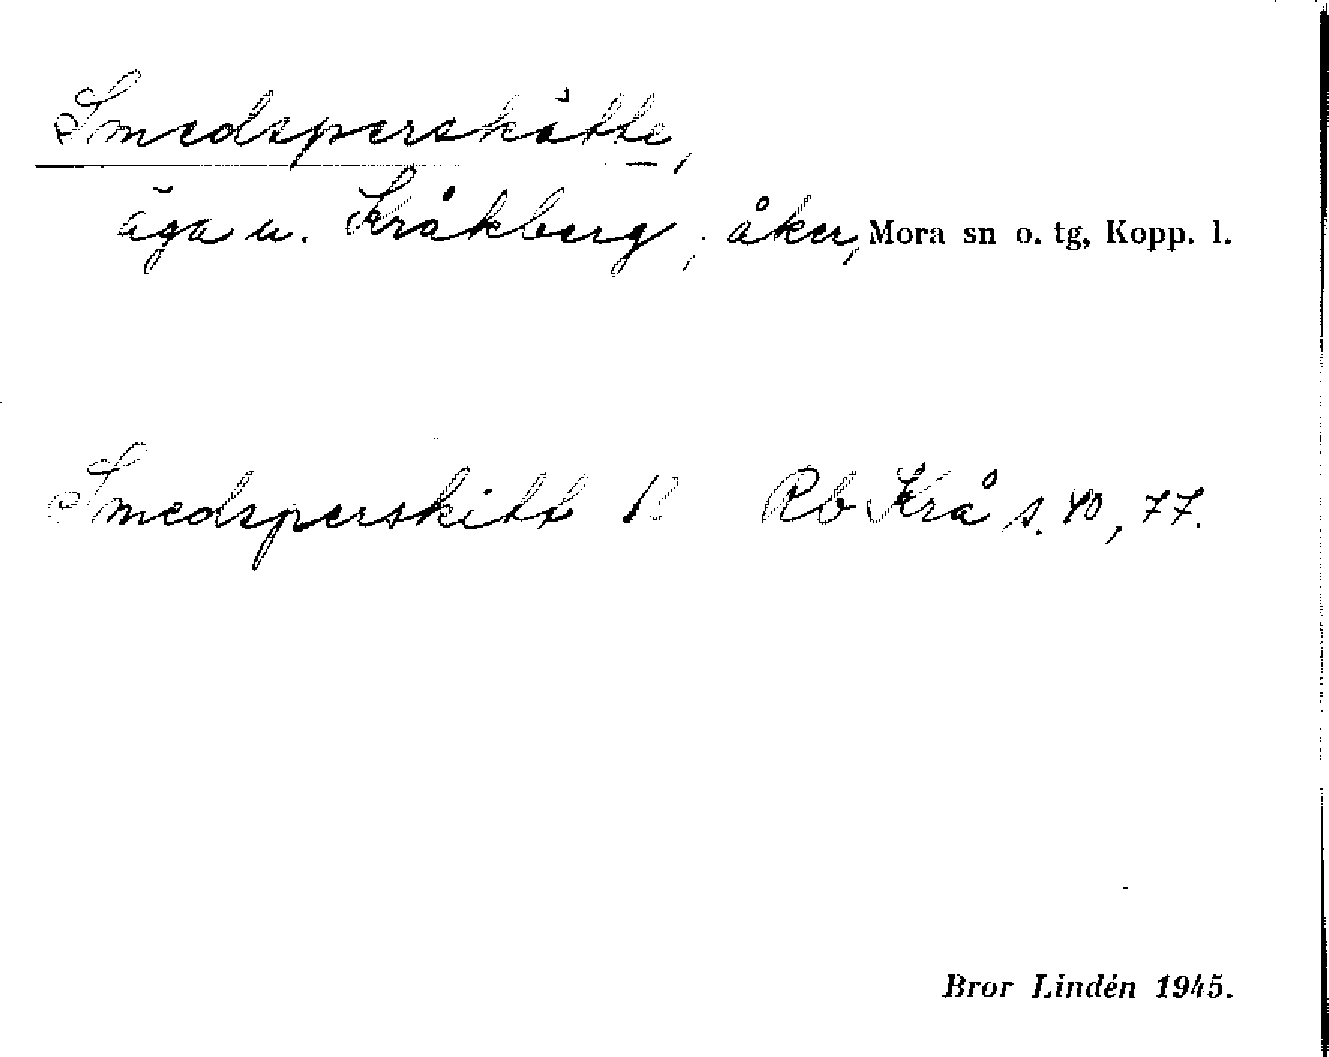 Smedsperskätte,
äga u. Kråkberg; åker, Mora sn o. tg, Kopp. l.
Smedsperskitt Rb Krå s. 40, 77.
Bror Lindén 1945.